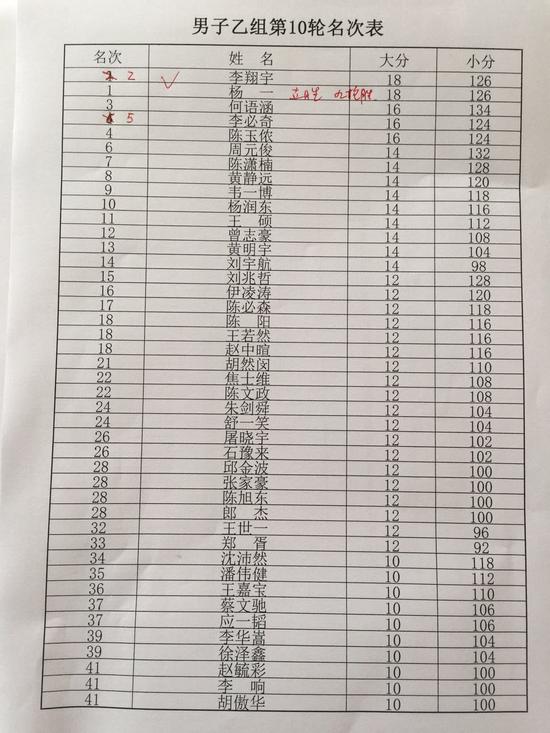 男子乙组第10轮名次表
名次 姓 名 大分 小分
2 李翔宇 18 126
1 杨 一 18 126
3 何语涵 16 134
5 李必奇 16 124
4 陈玉侬 16 124
6 周元俊 14 132
7 陈潇楠 14 128
8 黄静远 14 120
9 韦一博 14 118
10 杨润东 14 116
11 王 硕 14 112
12 曾志豪 14 108
13 黄明宇 14 104
14 刘宇航 14 98
15 刘兆哲 12 128
16 伊凌涛 12 120
17 陈必森 12 118
18 陈 阳 12 116
18 王若然 12 116
18 赵中暄 12 116
21 胡然闵 12 110
22 焦士维 12 108
22 陈文政 12 108
24 朱剑舜 12 104
24 舒一笑 12 104
26 屠晓宇 12 102
26 石豫来 12 102
28 邱金波 12 100
28 张家豪 12 100
28 陈旭东 12 100
28 郎 杰 12 100
32 王世一 12 96
33 郑 胥 12 92
34 沈沛然 10 118
35 潘伟健 10 112
36 王嘉宝 10 110
37 蔡文驰 10 106
37 应一韬 10 106
39 李华嵩 10 104
39 徐泽鑫 10 104
41 赵毓彩 10 100
41 李 响 10 100
41 胡傲华 10 100